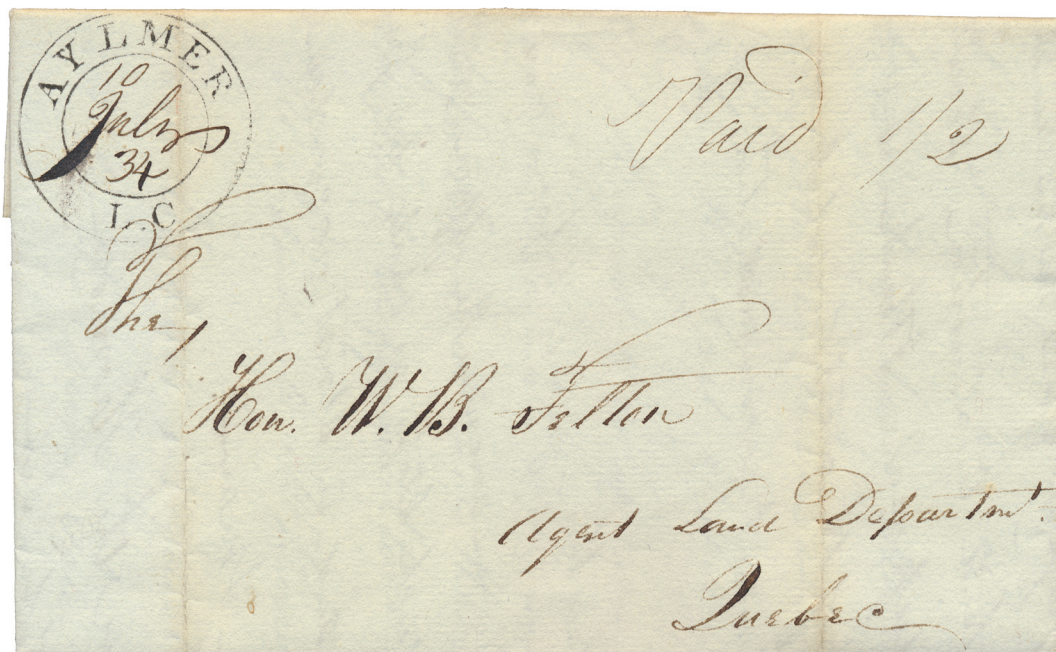 AYLMER
10
July
34
L.C
Paid 1/2
The,
Hon. W. B. Felton
Agent Land Departmt.
Quebec